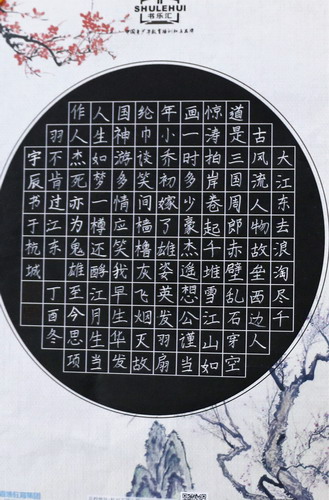 SHULEHUI
书乐汇
大江东去浪淘尽千
古风流人物故垒西边人
道是三国周郎赤壁乱石穿空
惊涛拍岸卷起千堆雪江山如
画一时多少豪杰遥想公谨当
年小乔初嫁了雄姿英发羽扇
纶巾谈笑间樯橹灰飞烟灭故
国神游多情应笑我早生华发
人生如梦一樽还酹江月生当
作人杰死亦为鬼雄至今思项
羽不肯过江东丁酉冬
宇辰书于杭城